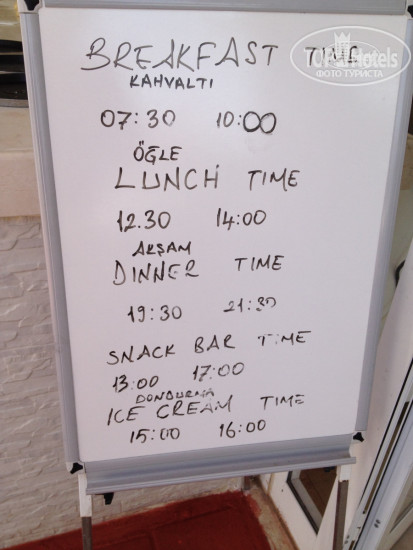 BREAKFAST TIME
KAHVALTI
07:30 10:00
ÖĞLE
LUNCH TIME
12.30 14:00
AKŞAM
DINNER TIME
19:30 21:30
SNACK BAR TIME
13:00 17:00
DONDURMA
ICE CREAM TIME
15:00 16:00
TopHotels
ФОТО ТУРИСТА